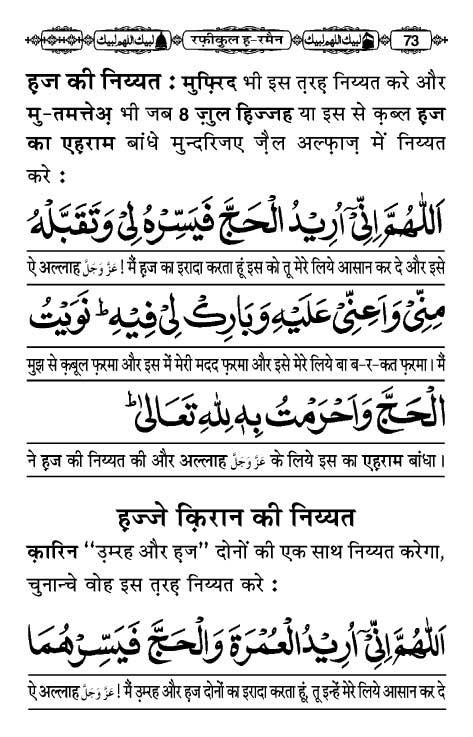 لبیک اللھم لبیک रफ़ीकुल ह-रमैन لبیک اللھم لبیک 73
ह़ज की निय्यत : मुफ़्रिद भी इस त़रह़ निय्यत करे और
मु-तमत्तेअ़ भी जब 8 ज़ुल ह़िज्जह या इस से क़ब्ल ह़ज
का एह़राम बांधे मुन्दरिजए ज़ैल अल्फ़ाज़ में निय्यत
करे :
اَللّٰهُمَّ اِنِّیْۤ اُرِیْدُ الْحَجَّ فَیَسِّرْهُ لِیْ وَتَقَبَّلْهُ
ऐ अल्लाह عَزَّوَجَلَّ ! मैं ह़ज का इरादा करता हूं इस को तू मेरे लिये आसान कर दे और इसे
مِنِّیْ وَاَعِنِّیْ عَلَیْهِ وَبَارِكْ لِیْ فِیْهِ ؕ نَوَیْتُ
मुझ से क़बूल फ़रमा और इस में मेरी मदद फ़रमा और इसे मेरे लिये बा ब-र-कत फ़रमा। मैं
الْحَجَّ وَاَحْرَمْتُ بِهٖ لِلّٰهِ تَعَالٰی ؕ
ने ह़ज की निय्यत की और अल्लाह عَزَّوَجَلَّ के लिये इस का एह़राम बांधा।
ह़ज्जे क़िरान की निय्यत
क़ारिन ‘‘उ़म्रह और ह़ज’’ दोनों की एक साथ निय्यत करेगा,
चुनान्चे वोह इस त़रह़ निय्यत करे :
اَللّٰهُمَّ اِنِّیْۤ اُرِیْدُ الْعُمْرَةَ وَالْحَجَّ فَیَسِّرْهُمَا
ऐ अल्लाह عَزَّوَجَلَّ ! मैं उ़म्रह और ह़ज दोनों का इरादा करता हूं, तू इन्हें मेरे लिये आसान कर दे